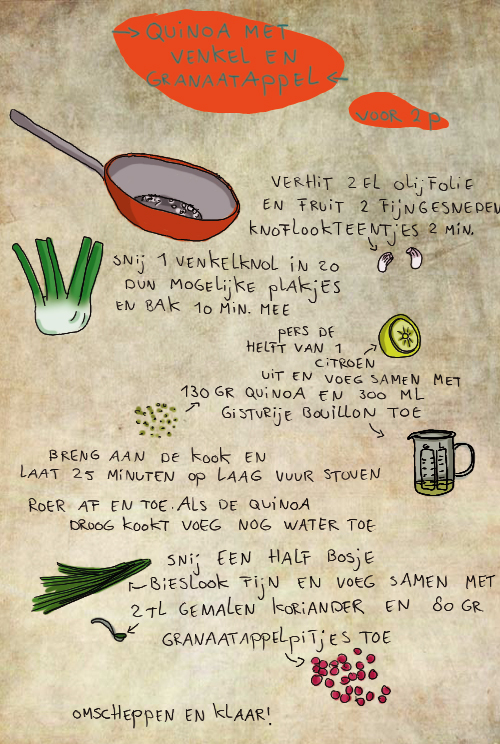 QUINOA MET
VENKEL EN
GRANAATAPPEL
VOOR 2 P
VERHIT 2 EL OLIJFOLIE
EN FRUIT 2 FIJNGESNEDEN
KNOFLOOKTEENTJES 2 MIN.
SNIJ 1 VENKELKNOL IN ZO
DUN MOGELIJKE PLAKJES
EN BAK 10 MIN. MEE
PERS DE
HELFT VAN 1
CITROEN
UIT EN VOEG SAMEN MET
130 GR QUINOA EN 300 ML
GISTVRIJE BOUILLON TOE
BRENG AAN DE KOOK EN
LAAT 25 MINUTEN OP LAAG VUUR STOVEN
ROER AF EN TOE. ALS DE QUINOA
DROOG KOOKT VOEG NOG WATER TOE
SNIJ EEN HALF BOSJE
BIESLOOK FIJN EN VOEG SAMEN MET
2 TL GEMALEN KORIANDER EN 80 GR
GRANAATAPPELPITJES TOE
OMSCHEPPEN EN KLAAR!